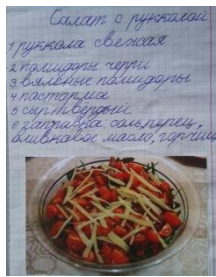 Салат с рукколой
1 руккола свежая
2 помидоры черри
3 вяленые помидоры
4 пастарма
5 сыр твёрдый
6 заправка соль, перец,
оливковое масло, горчиц